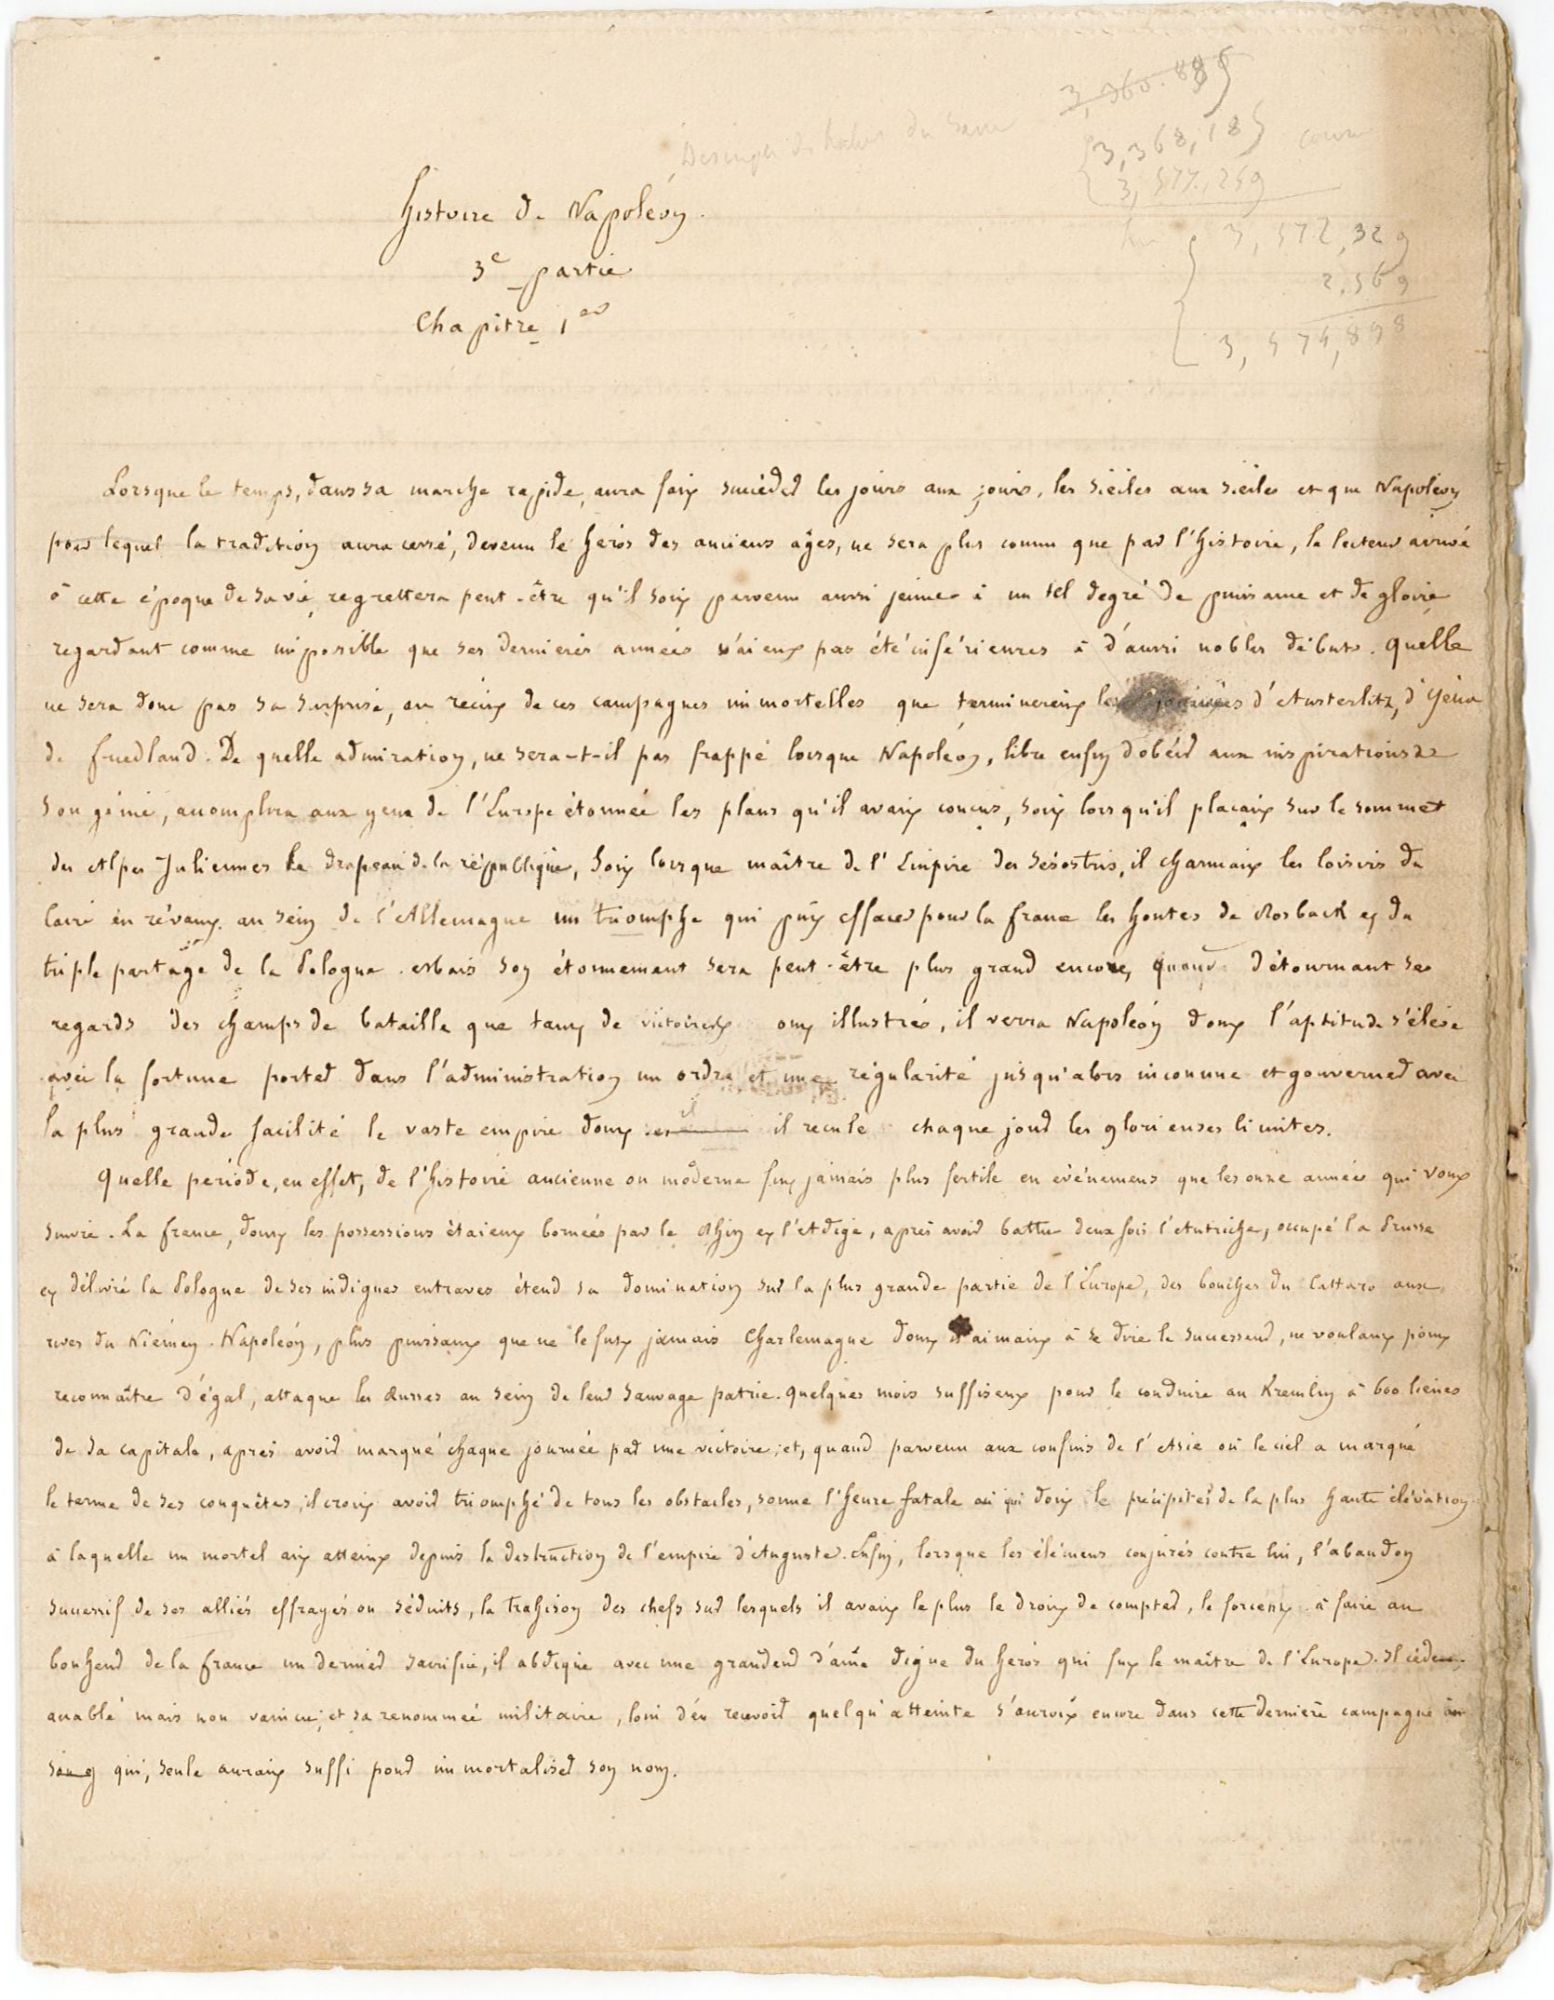 3,360.889
3,368,189
3,577,259
3,572,329
2,569
3,574,898
histoire de Napoléon.
3e partie
Chapitre 1er
Lorsque le temps, dans sa marche rapide, aura fait succéder les jours aux jours, les siècles aux siècles et que Napoléon
pour lequel la tradition aura cessé, devenu le héros des anciens âges, ne sera plus connu que par l'histoire, le lecteur arrivé
à cette époque de sa vie, regrettera peut-être qu'il soit parvenu aussi jeune à un tel degré de puissance et de gloire
regardant comme impossible que ses dernières années n'aient pas été inférieures à d'aussi nobles débuts. Quelle
ne sera donc pas sa surprise, au récit de ces campagnes immortelles que terminèrent les journées d'Austerlitz, d'Yéna
de Friedland. De quelle admiration, ne sera-t-il pas frappé lorsque Napoléon, libre enfin d'obéir aux inspirations de
son génie, accomplira aux yeux de l'Europe étonnée les plans qu'il avait conçus, soit lorsqu'il plaçait sur le sommet
des Alpes Juliennes le drapeau de la république, soit lorsque maître de l'Empire des Sésostris, il charmait les loisirs du
Caire en rêvant au sein de l'Allemagne un triomphe qui pût effacer pour la france les hontes de Rosback et du
triple partage de la Pologne. Mais son étonnement sera peut-être plus grand encore, quand détournant ses
regards des champs de bataille que tant de victoires ont illustrés, il verra Napoléon dont l'aptitude s'élève
avec la fortune porter dans l'administration un ordre et une régularité jusqu'alors inconnue et gouverner avec
la plus grande facilité le vaste empire dont il recule chaque jour les glorieuses limites.
Quelle période, en effet, de l'histoire ancienne ou moderne fut jamais plus fertile en événemens que les onze années qui vont
suivre. La france, dont les possessions étaient bornées par le Rhin et l'Adige, après avoir battu deux fois l'Autriche, occupé la Prusse
et délivré la Pologne de ses indignes entraves étend sa domination sur la plus grande partie de l'Europe, des bouches du Cattaro aux
rives du Niémen. Napoléon, plus puissant que ne le fut jamais Charlemagne dont il aimait à se dire le successeur, ne voulant point
reconnaître d'égal, attaque les Russes au sein de leur sauvage patrie. Quelques mois suffisent pour le conduire au Kremlin à 600 lieues
de sa capitale, après avoir marqué chaque journée par une victoire; et, quand parvenu aux confins de l'Asie où le ciel a marqué
le terme de ses conquêtes, il croit avoir triomphé de tous les obstacles, sonne l'heure fatale qui doit le précipiter de la plus haute élévation
à laquelle un mortel ait atteint depuis la destruction de l'empire d'Auguste. Enfin, lorsque les élémens conjurés contre lui, l'abandon
successif de ses alliés effrayés ou séduits, la trahison des chefs sur lesquels il avait le plus le droit de compter, le forcent à faire au
bonheur de la france un dernier sacrifice, il abdique avec une grandeur d'âme digne du héros qui fut le maître de l'Europe. Il cède
accablé mais non vaincu; et sa renommée militaire, loin d'en recevoir quelqu'atteinte s'accroît encore dans cette dernière campagne
sang qui, seule aurait suffi pour immortaliser son nom.